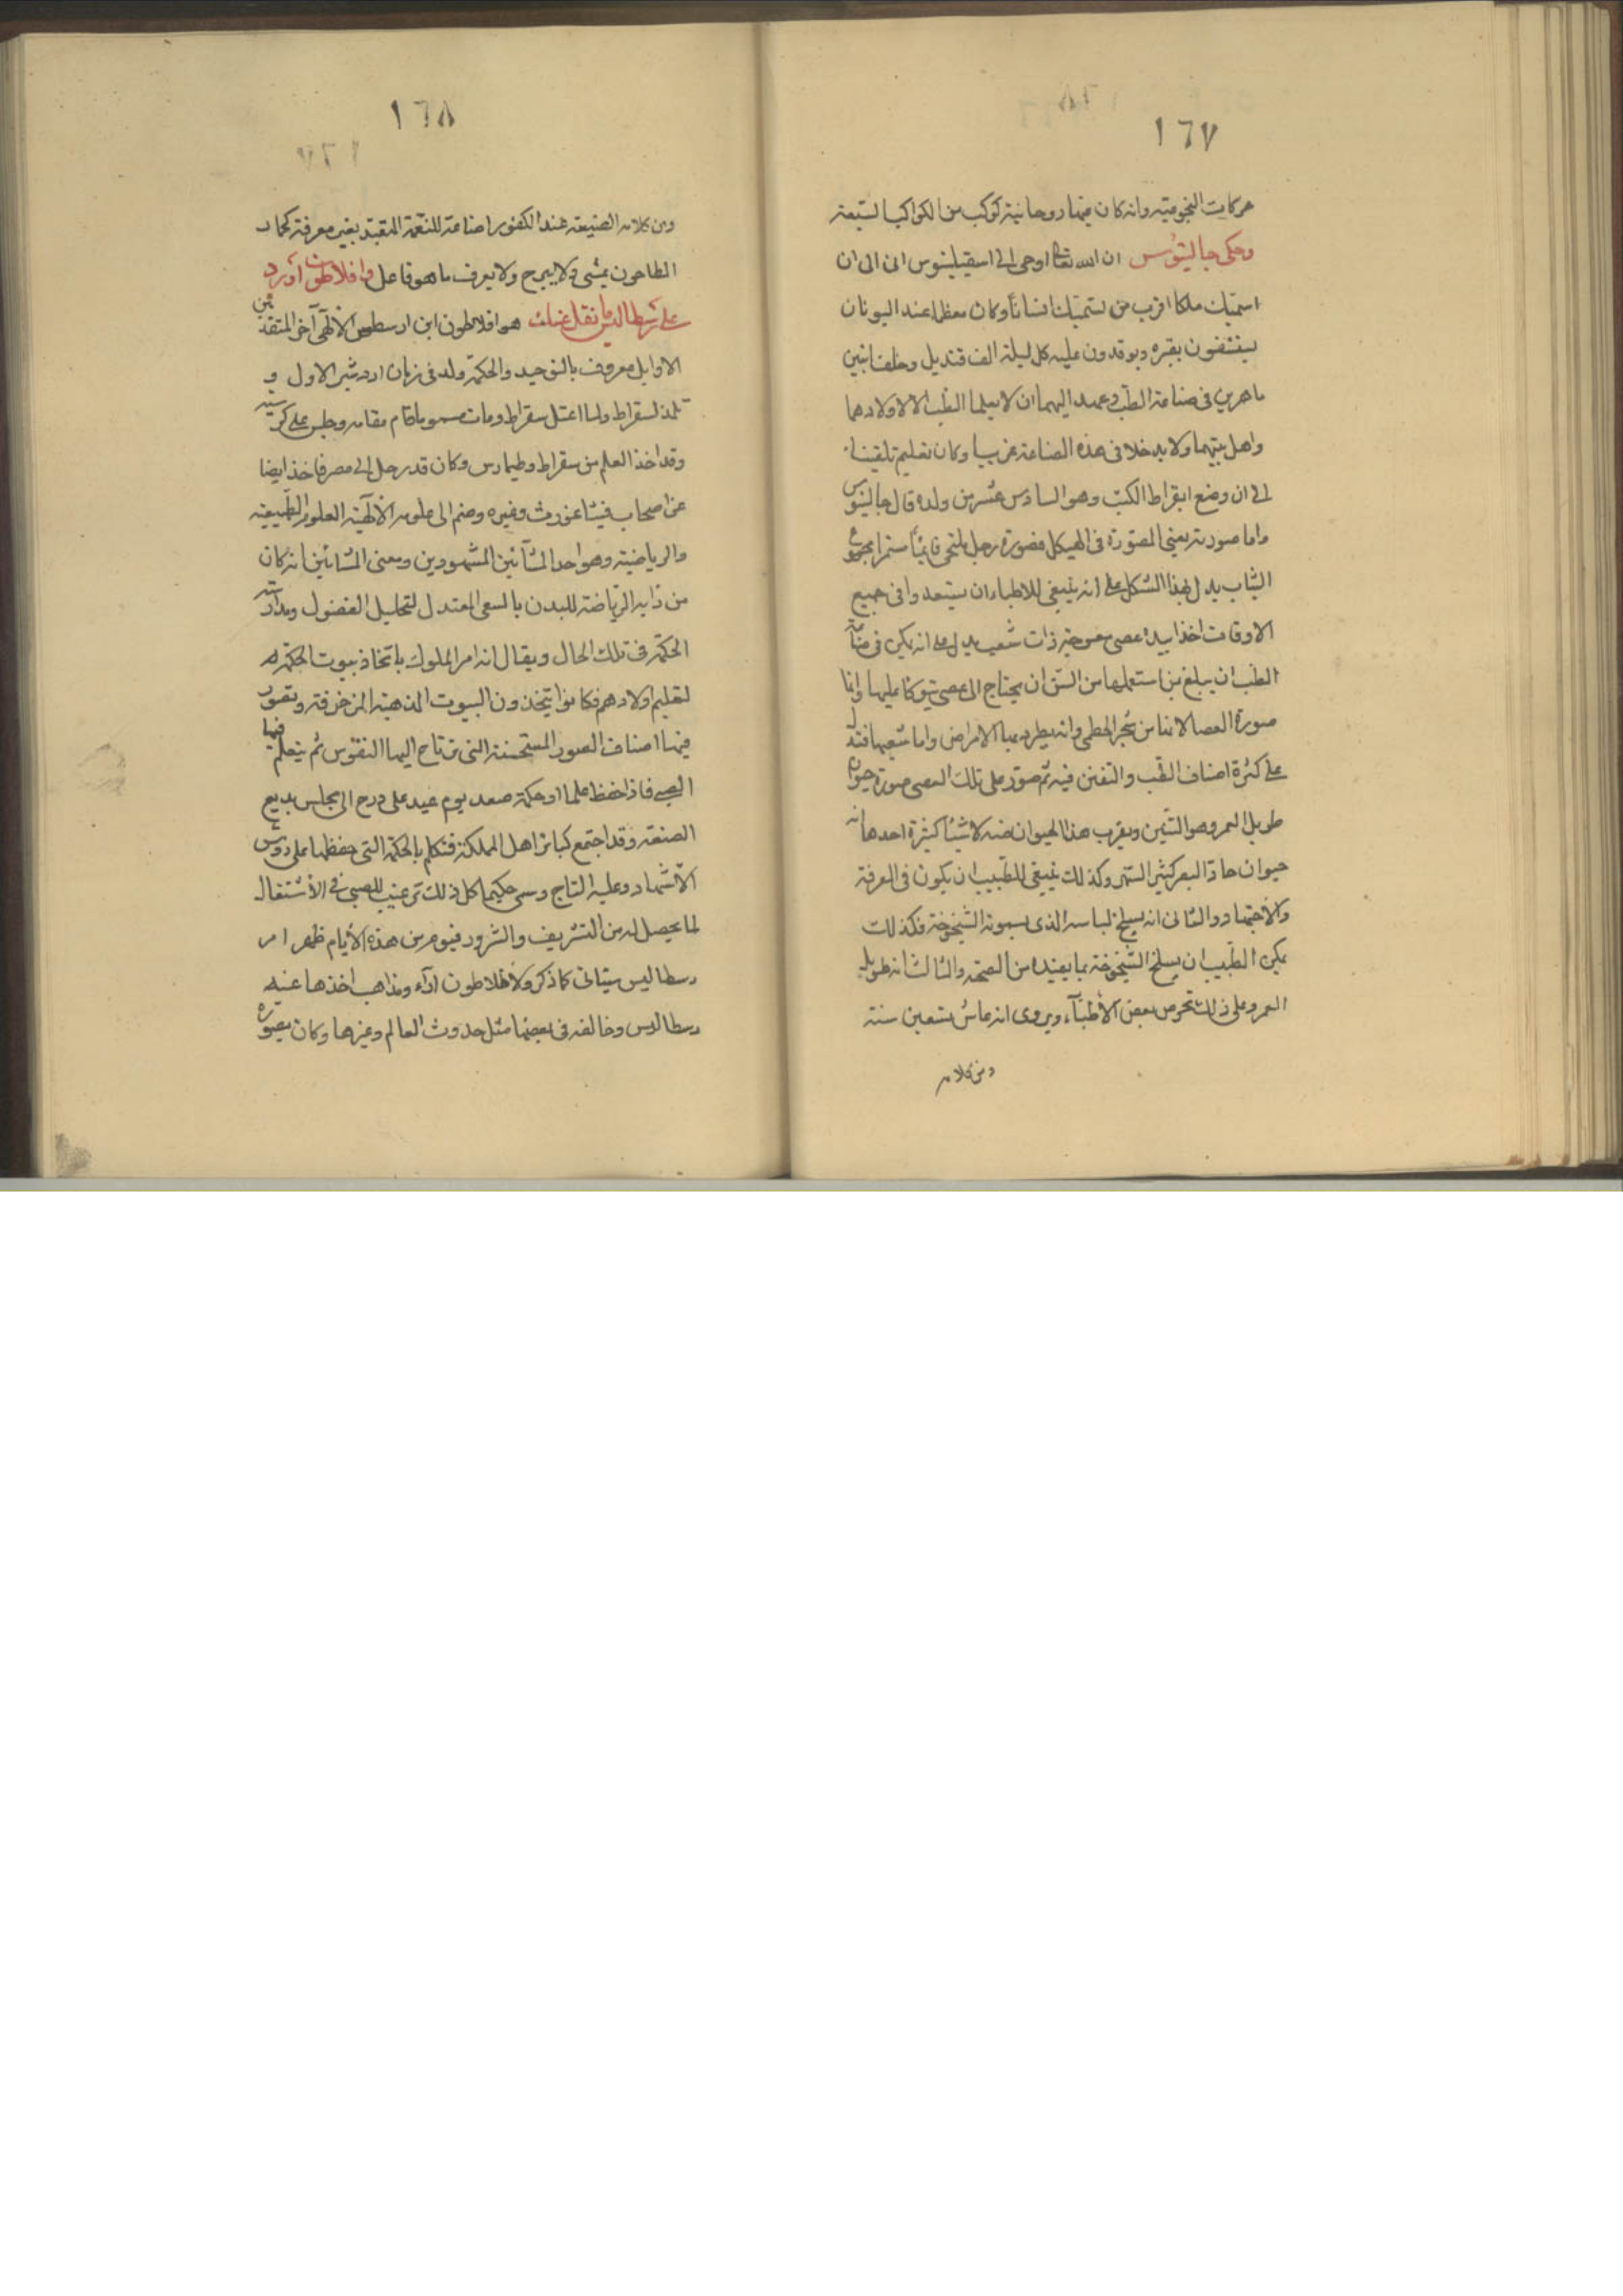 ١٦٧
حركات النجومية وانه كان فيها روحانية كوكب من الكواكب السبعة
وحكى جالينوس ان الله تعالى اوحى الى اسقيلبنوس انى الى ان
اسميك ملكا اقرب من اسميك انسانا وكان معظما عند اليونان
يستشفون بقبره ويوقدون عليه كل ليلة الف قنديل وخلف ابنين
ماهرين فى صناعة الطب وعهد اليهما ان لا يعلما الطب الا لاولادهما
واهل بيتهما ولا يدخلا فى هذه الصناعة غريبا وكان تعليم تلقينا
الى ان وضع ابقراط الكتب وهو السادس عشر من ولده قال جالينوس
واما صورته يعنى المصورة فى الهيكل فصورة رجل ملتحى قايما مستمرا مجموع
الثياب يدل بهذا الشكل على انه ينبغى للاطباء ان يستعدوا فى جميع
الاوقات اخذا بيده عصى معوجة ذات شعب يدل على انه يمكن فى صناعة
الطب ان يبلغ من استعملها من السن ان يحتاج الى عصى يتوكا عليها وانما
صورة العصا لانها من شجر الخطمى وانه يطرد بها الامراض واما شعبها فتدل
على كثرة اصناف الطب والتفنن فيه ثم صور على تلك العصى صورة حيوان
طويل العمر وهو التنين ويقرب هذا الحيوان منه لاشياء كثيرة احدها انه
حيوان حاد البصر كثير السهر وكذلك ينبغى للطبيب ان يكون فى المعرفة
والاجتهاد والثانى انه يسلخ لباسه الذى يسمونه الشيخوخة فكذلك
يمكن الطبيب ان يسلخ الشيخوخة بما يفيده من الصحة والثالث انه طويل
العمر وعلى ذلك تحرص بعض الأطباء ويروى انه عاش تسعين سنة
ومن كلامه
١٦٨
ومن كلامه الصنيعة عند الكفور اضاعة للنعمة المتعبد بغير معرفة كحمار
الطاحون يمشى ولا يبرح ولا يعرف ما هو فاعل وافلاطون اورد
على رسطاليس ما نقل عنك هو افلاطون ابن ارسطوس الألهى آخر المتقدمين
الاوايل معروف بالتوحيد والحكمة ولد فى زمان اردشير الاول و
تلمذ لسقراط ولما اعتل سقراط ومات مسموما قام مقامه وجلس على كرسيه
وقد اخذ العلم من سقراط وطيمارس وكان قد رحل الى مصر فاخذ ايضا
عن اصحاب فيثاغورث وغيره وضم الى علومه الألهية العلوم الطبيعية
والرياضية وهو احد المشآئين المشهودين ومعنى المشائين انه كان
من دابه الرياضة للبدن بالسعى المعتدل لتحليل الفضول ومدارسة
الحكمة فى تلك الحال ويقال انه امر الملوك باتخاذ بيوت الحكمة له
لتعليم اولادهم فكانوا يتخذون البيوت المذهبة المزخرفة وتصور
فيها اصناف الصور المستحسنة التى ترتاح اليها النفوس ثم يتعلم فيها
الصبى فاذا حفظ علما او حكمة صعد يوم عيد على درج الى مجلس بديع
الصنعة وقد اجتمع كبائر اهل المملكة فتكلم بالحكمة التى حفظها على رؤس
الأشهاد وعليه التاج وسمى حكيما كل ذلك ترغيب للصبى فى الأشتغال
لما يحصل له من التشريف والشرور فيوم من هذه الأيام ظهر امر
رسطاليس سيتاتى كما ذكر ولأفلاطون ارآء ومذاهب اخذها عنه
رسطاليس وخالفه فى بعضها مثل حدوث العالم وغيرها وكان يصور